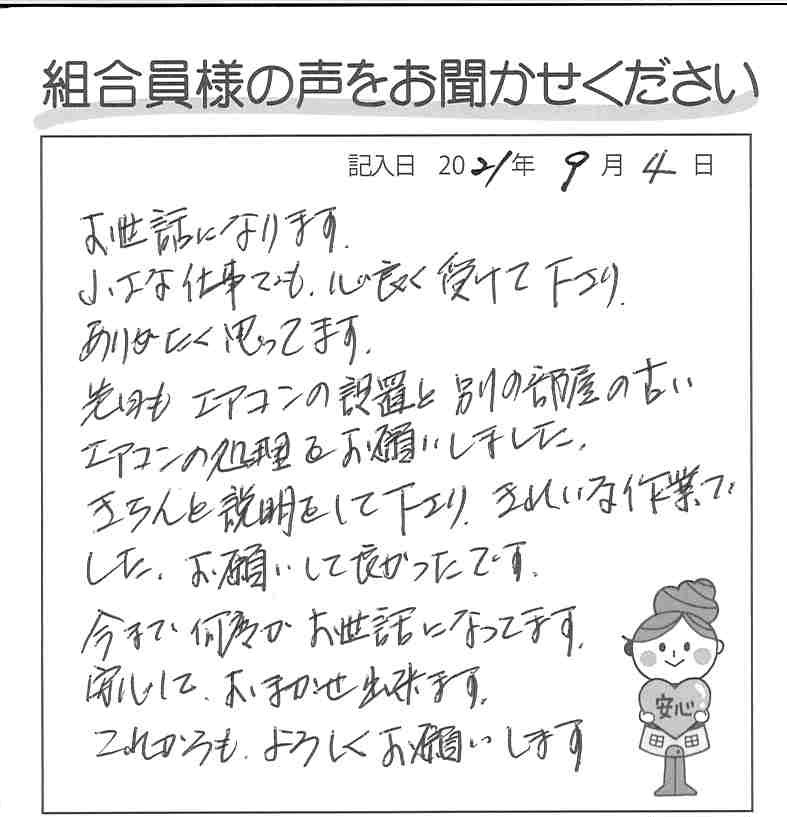 組合員様の声をお聞かせください
記入日 2021年 9月 4日
お世話になります.
小さな仕事でも、心良く受けて下さり.
ありがたく思ってます.
先日も エアコンの設置と 別の部屋の古い
エアコンの処理をお願いしました.
きちんと説明をして下さり、きれいな作業で
した. お願いして良かったです.
今まで 何度か お世話になってます.
安心して、おまかせ出来ます.
これからも、よろしくお願いします
安心